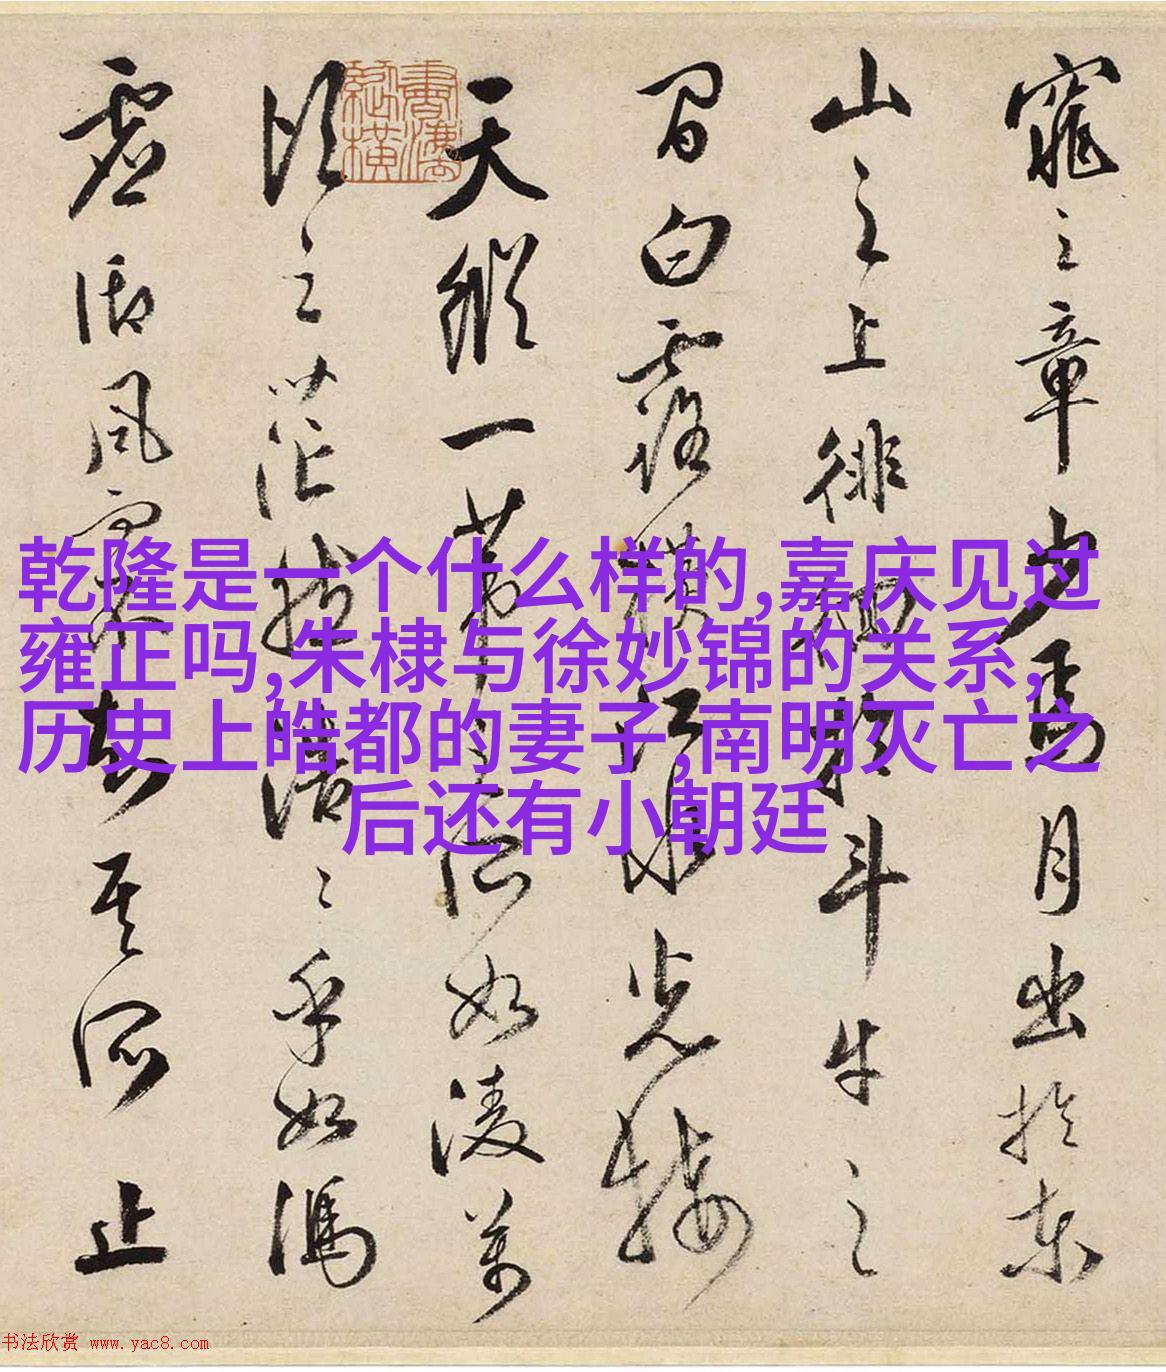 窕之章少焉月出於東
山之上徘徊於斗牛之
間白露横江水光接
天縱一葦之所如淩萬
頃之茫然浩〻乎如馮
虚御風而不知其所止
乾隆是一个什么样的,嘉庆见过
雍正吗,朱棣与徐妙锦的关系,
历史上皓都的妻子,南明灭亡之
后还有小朝廷
书法欣赏 www.yac8.com